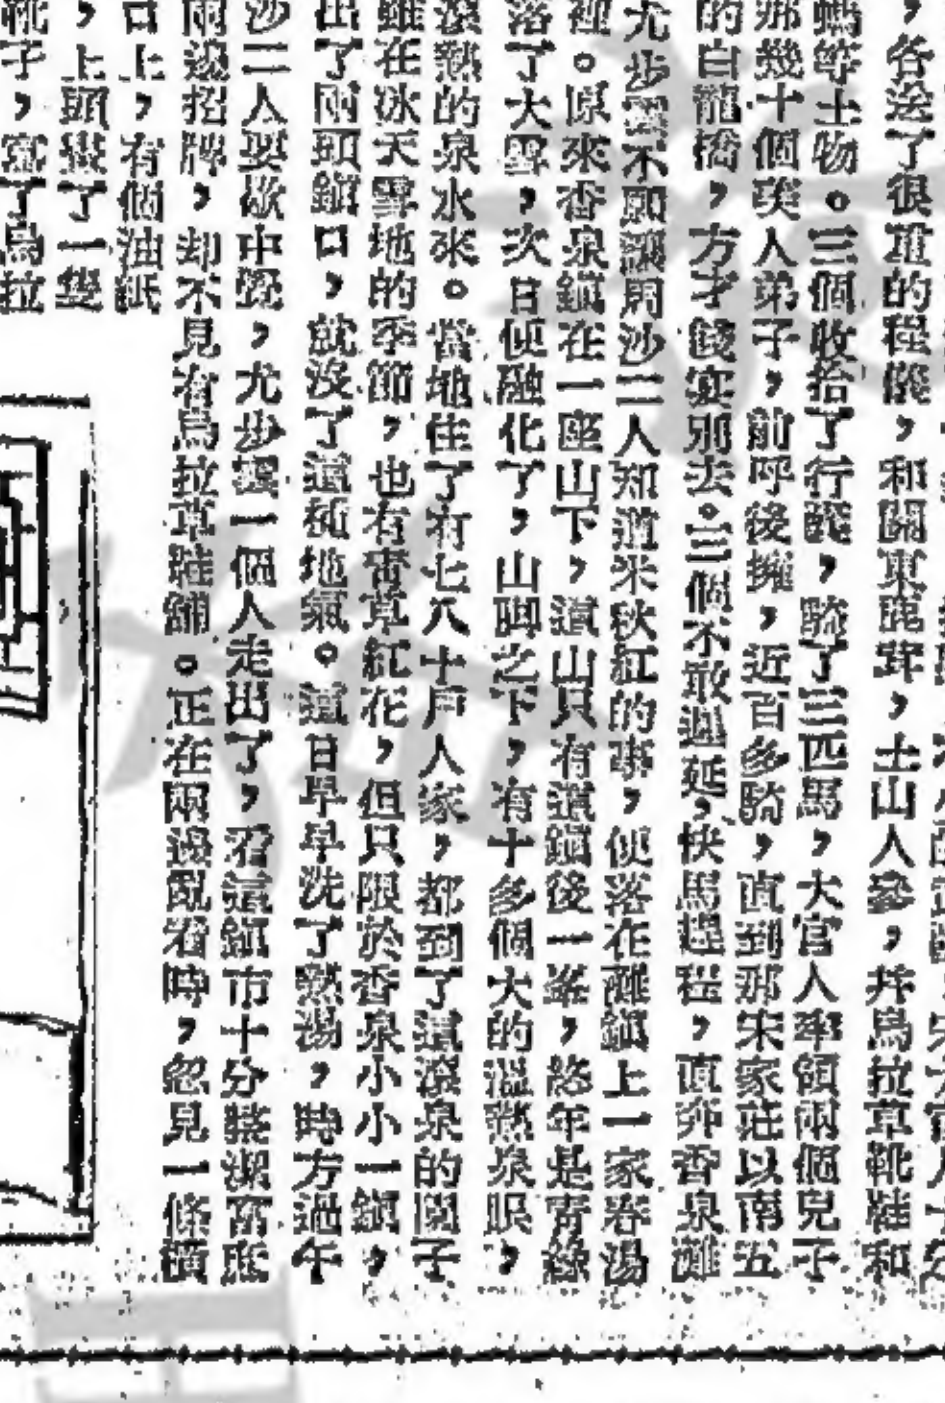 ，各送了很重的程儀，和關東鹿茸，土山人參，幷烏拉草靴鞋和
等土物。三個收拾了行，騎了三匹馬，大官人率領兩個兒子
那幾十個人弟子，前呼後擁，近百多騎，直到那宋家莊以南五
的白龍橋，方才餞宴別去。三個不敢遲延，快馬趕程，直奔香泉
尤步雲不願讓周沙二人知道米秋紅的事，便落在離鎮上一家春湯
裡。原來香泉鎮在一座山下，這山只有這鎮後一峯，悠年是靑綠
落了大雪，次日便融化了，山脚之下，有十多個大的溫熱泉眼，
滾熱的泉水來。當地住了有七八十戶人家，都到了這滾泉的
雖在冰天雪地的季節，也有靑草紅花，但只限於香泉小小一鎮，
出了兩頭鎮口，就沒了這和地氣。這日早早洗了熱湯，時方過午
沙二人要歇中覺，尤步雲一個人走出了，看這鎮市十分潔
兩邊招牌，却不見有烏拉草鞋舖。正在兩邊亂看時，忽見一條橫
口上，有個油紙
，上頭畫了一隻
靴子，寫了烏拉